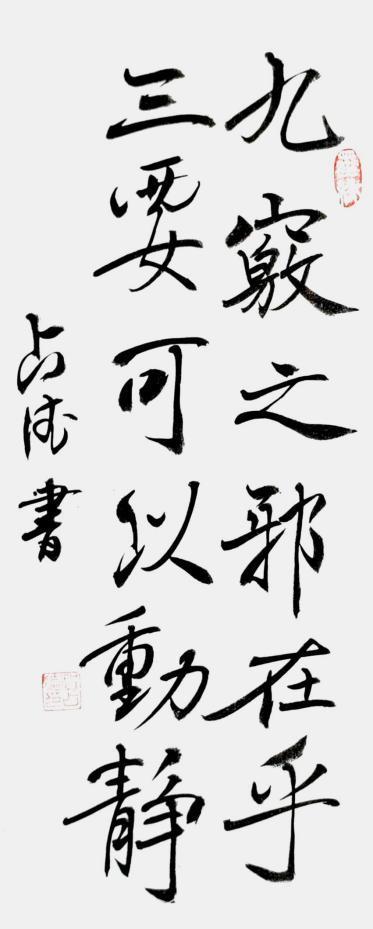 九竅之邪在乎
三要可以動静
占涛書